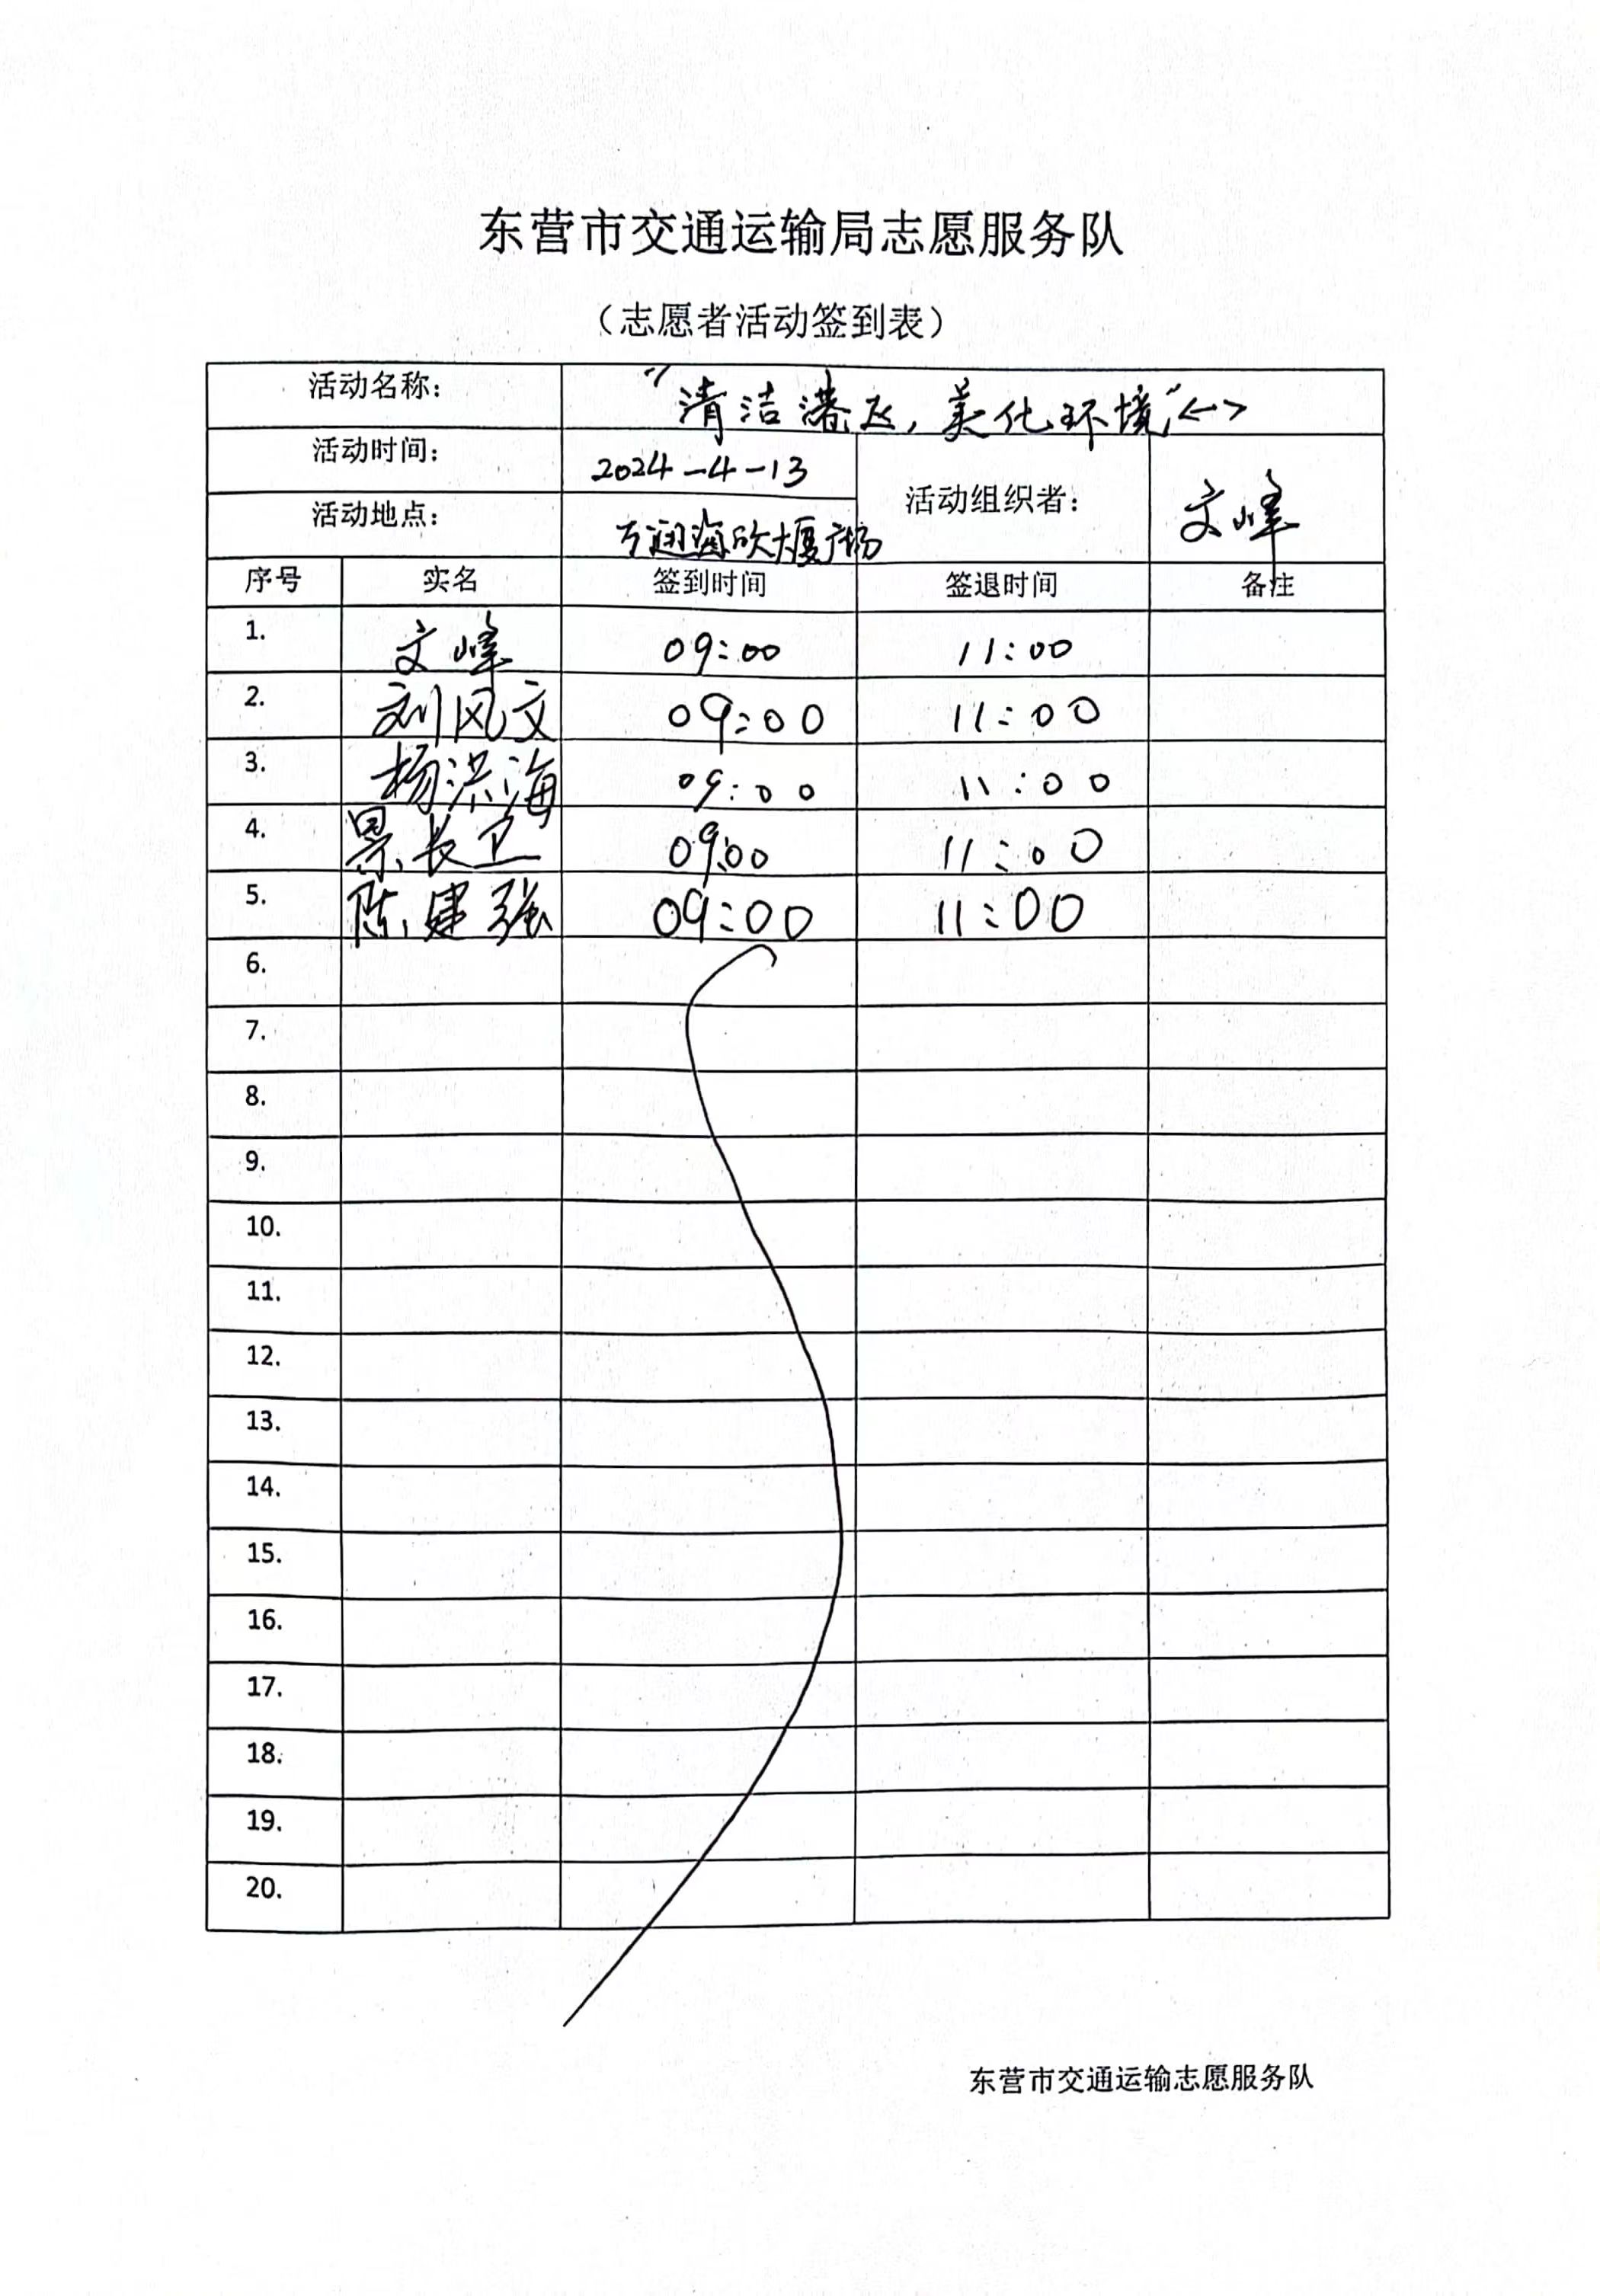 东营市交通运输局志愿服务队
（志愿者活动签到表）
活动名称： “清洁港区，美化环境”<一>
活动时间： 2024-4-13
活动组织者： 文峰
活动地点： 海欣大厦广场
序号 实名 签到时间 签退时间 备注
1. 文峰 09:00 11:00
2. 刘风文 09:00 11:00
3. 杨洪海 09:00 11:00
4. 景长卫 09:00 11:00
5. 陈建强 09:00 11:00
6.
7.
8.
9.
10.
11.
12.
13.
14.
15.
16.
17.
18.
19.
20.
东营市交通运输志愿服务队